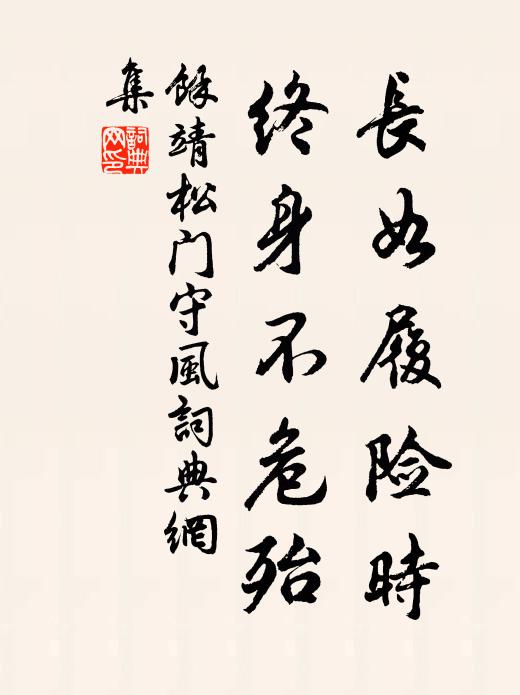 長如履险時
終身不危殆
餘靖松门守風詞典網
集
詞典网印